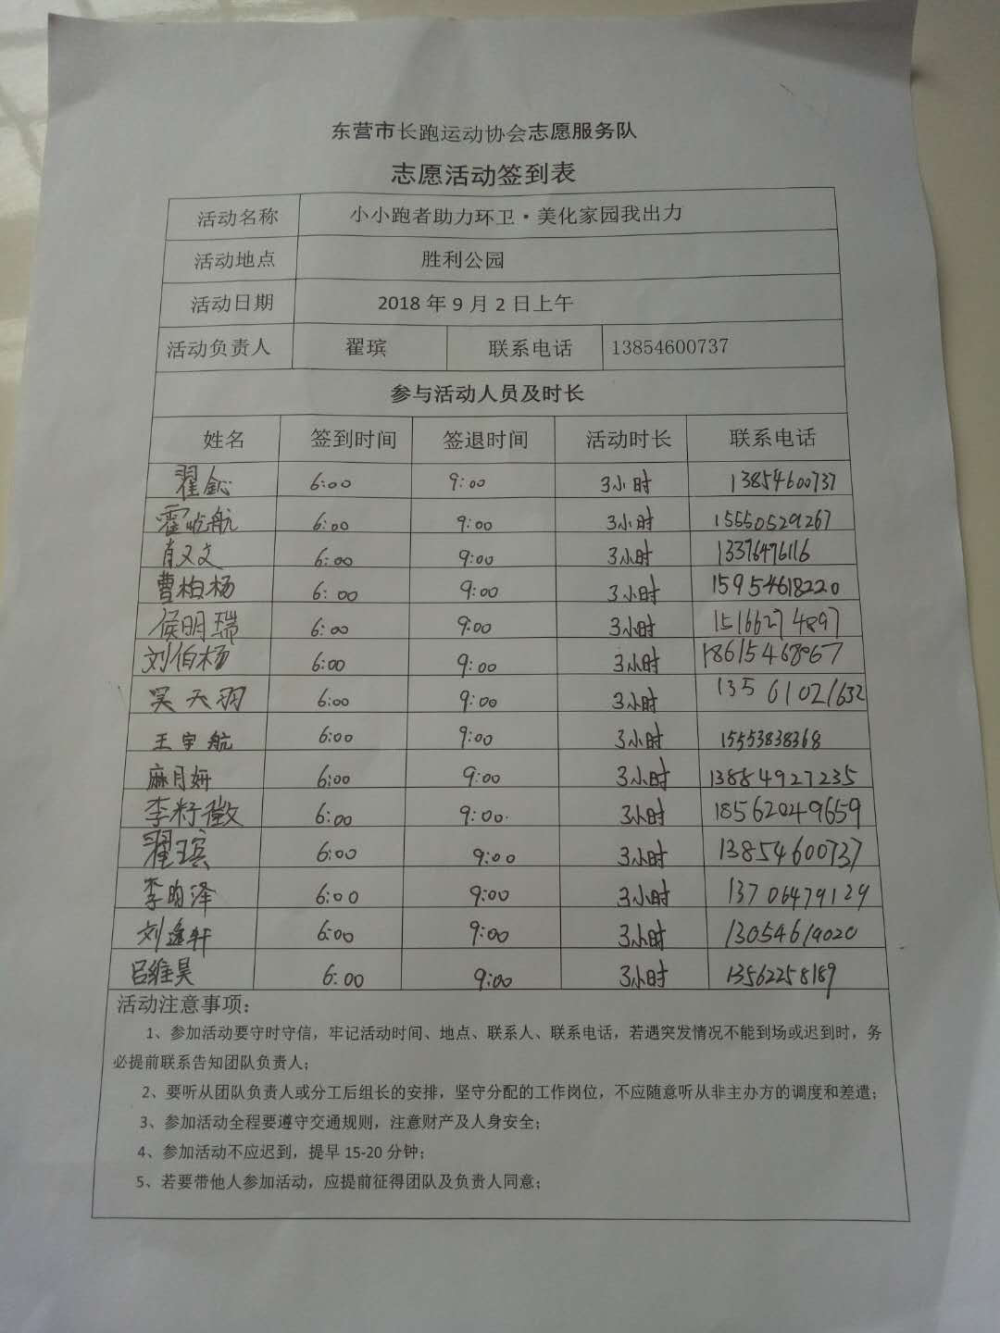 东营市长跑运动协会志愿服务队
志愿活动签到表
活动名称 小小跑者助力环卫·美化家园我出力
活动地点 胜利公园
活动日期 2018年9月2日上午
活动负责人 翟瑸 联系电话 13854600737
参与活动人员及时长
姓名 签到时间 签退时间 活动时长 联系电话
翟 6:00 9:00 3小时 13854600737
霍 航 6:00 9:00 3小时 15550529267
肖又文 6:00 9:00 3小时 13376476116
曹柏杨 6:00 9:00 3小时 15954618220
侯明瑞 6:00 9:00 3小时 15166274897
刘伯杨 6:00 9:00 3小时 18615468967
吴天羽 6:00 9:00 3小时 13561021632
王宇航 6:00 9:00 3小时 15553838368
麻月妍 6:00 9:00 3小时 13884927235
李籽徵 6:00 9:00 3小时 18562049659
翟瑸 6:00 9:00 3小时 13854600737
李昀泽 6:00 9:00 3小时 13706479129
刘逸轩 6:00 9:00 3小时 13054619020
吕维昊 6:00 9:00 3小时 13562258189
活动注意事项：
1、参加活动要守时守信，牢记活动时间、地点、联系人、联系电话，若遇突发情况不能到场或迟到时，务
必提前联系告知团队负责人；
2、要听从团队负责人或分工后组长的安排，坚守分配的工作岗位，不应随意听从非主办方的调度和差遣；
3、参加活动全程要遵守交通规则，注意财产及人身安全；
4、参加活动不应迟到，提早15-20分钟；
5、若要带他人参加活动，应提前征得团队及负责人同意；